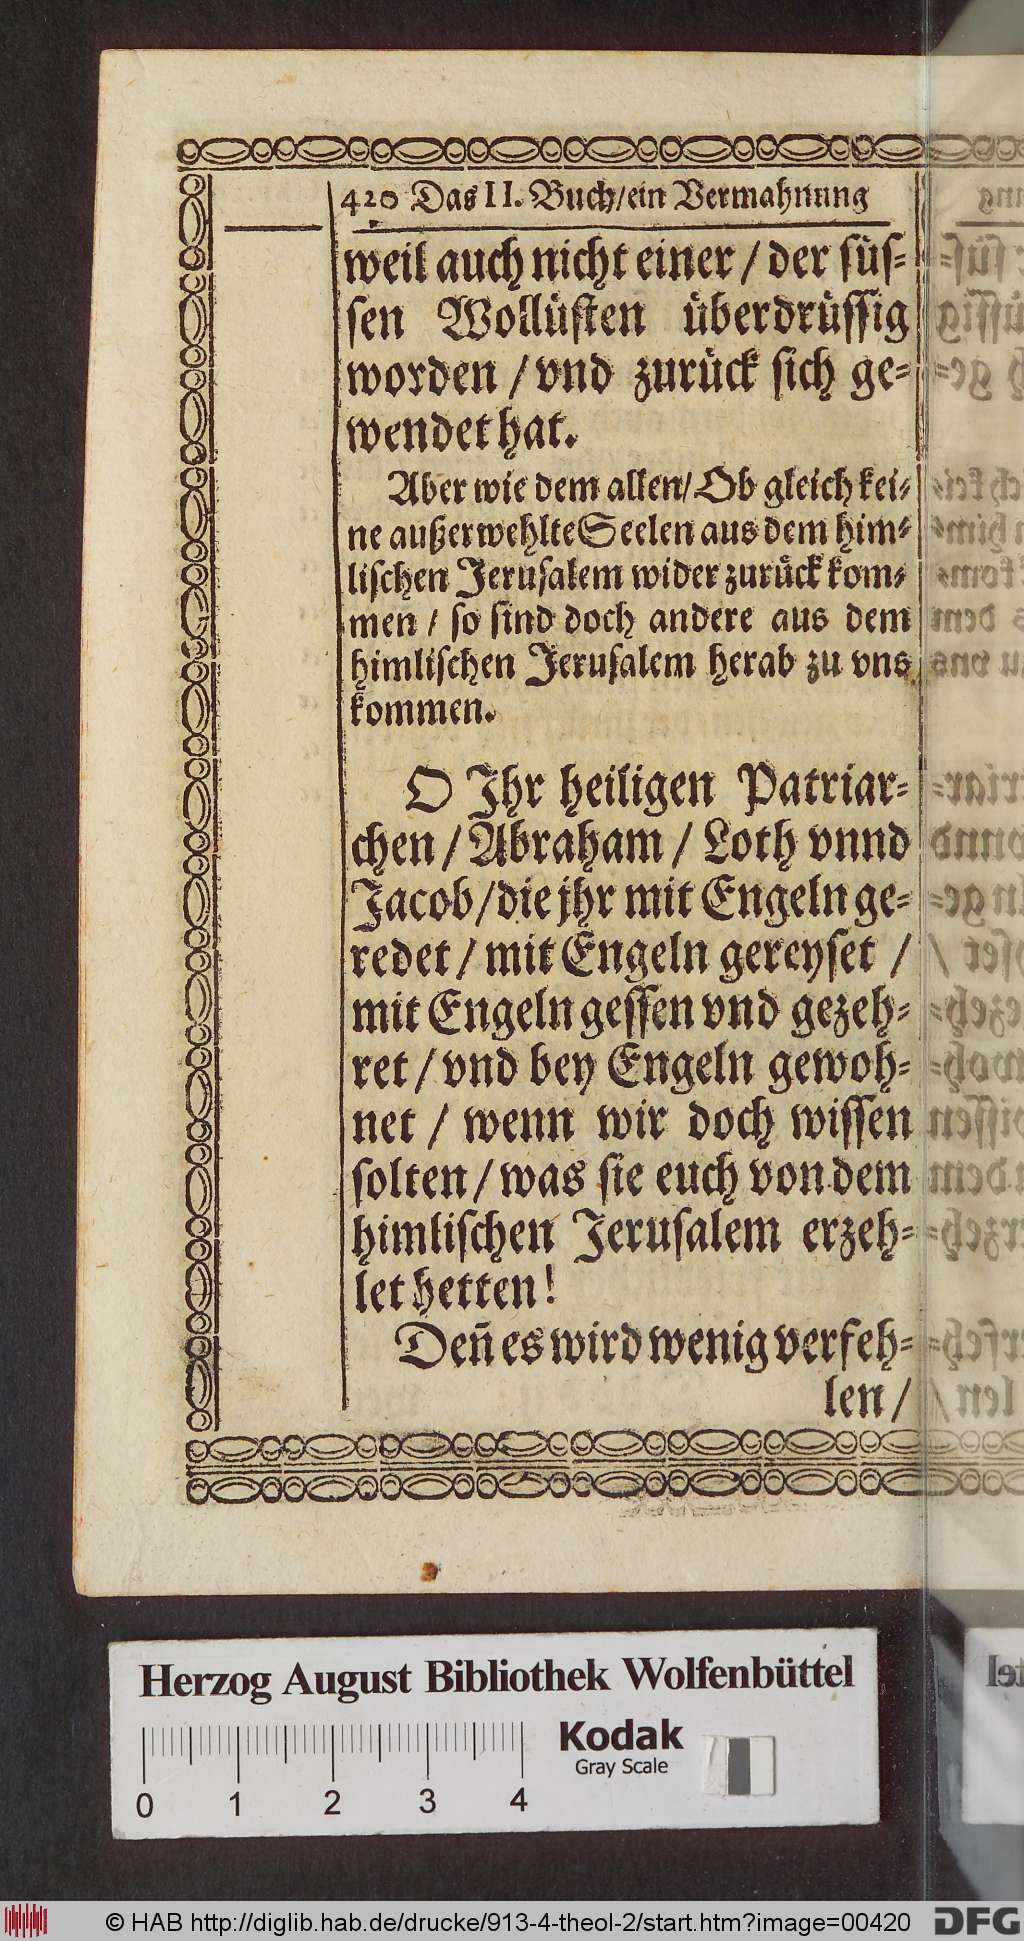 420 Das II. Buch/ein Vermahnung
weil auch nicht einer / der süs-
sen Wollüsten überdrüssig
worden / vnd zurück sich ge-
wendet hat.
Aber wie dem allen/ Ob gleich kei-
ne außerwehlte Seelen aus dem him-
lischen Jerusalem wider zurück kom-
men / so sind doch andere aus dem
himlischen Jerusalem herab zu vns
kommen.
O Ihr heiligen Patriar-
chen / Abraham / Loth vnnd
Jacob/die jhr mit Engeln ge-
redet / mit Engeln gereyset /
mit Engeln gessen vnd gezeh-
ret / vnd bey Engeln gewoh-
net / wenn wir doch wissen
solten / was sie euch von dem
himlischen Jerusalem erzeh-
let hetten!
Deñ es wird wenig verfeh-
len /
Herzog August Bibliothek Wolfenbüttel
Kodak
Gray Scale
0 1 2 3 4
© HAB http://diglib.hab.de/drucke/913-4-theol-2/start.htm?image=00420
DFG